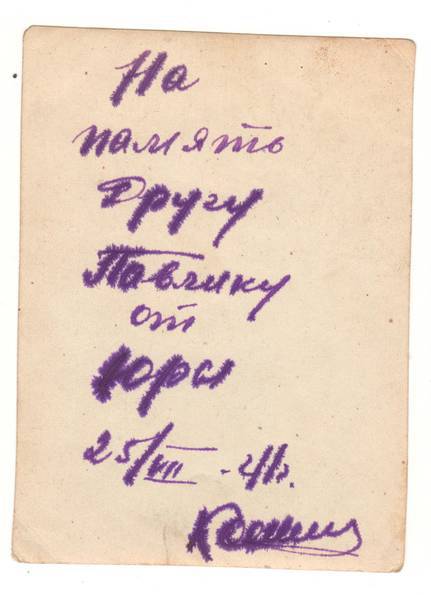 На
память
Другу
Павлику
от
Юры
25/VIII -41г.